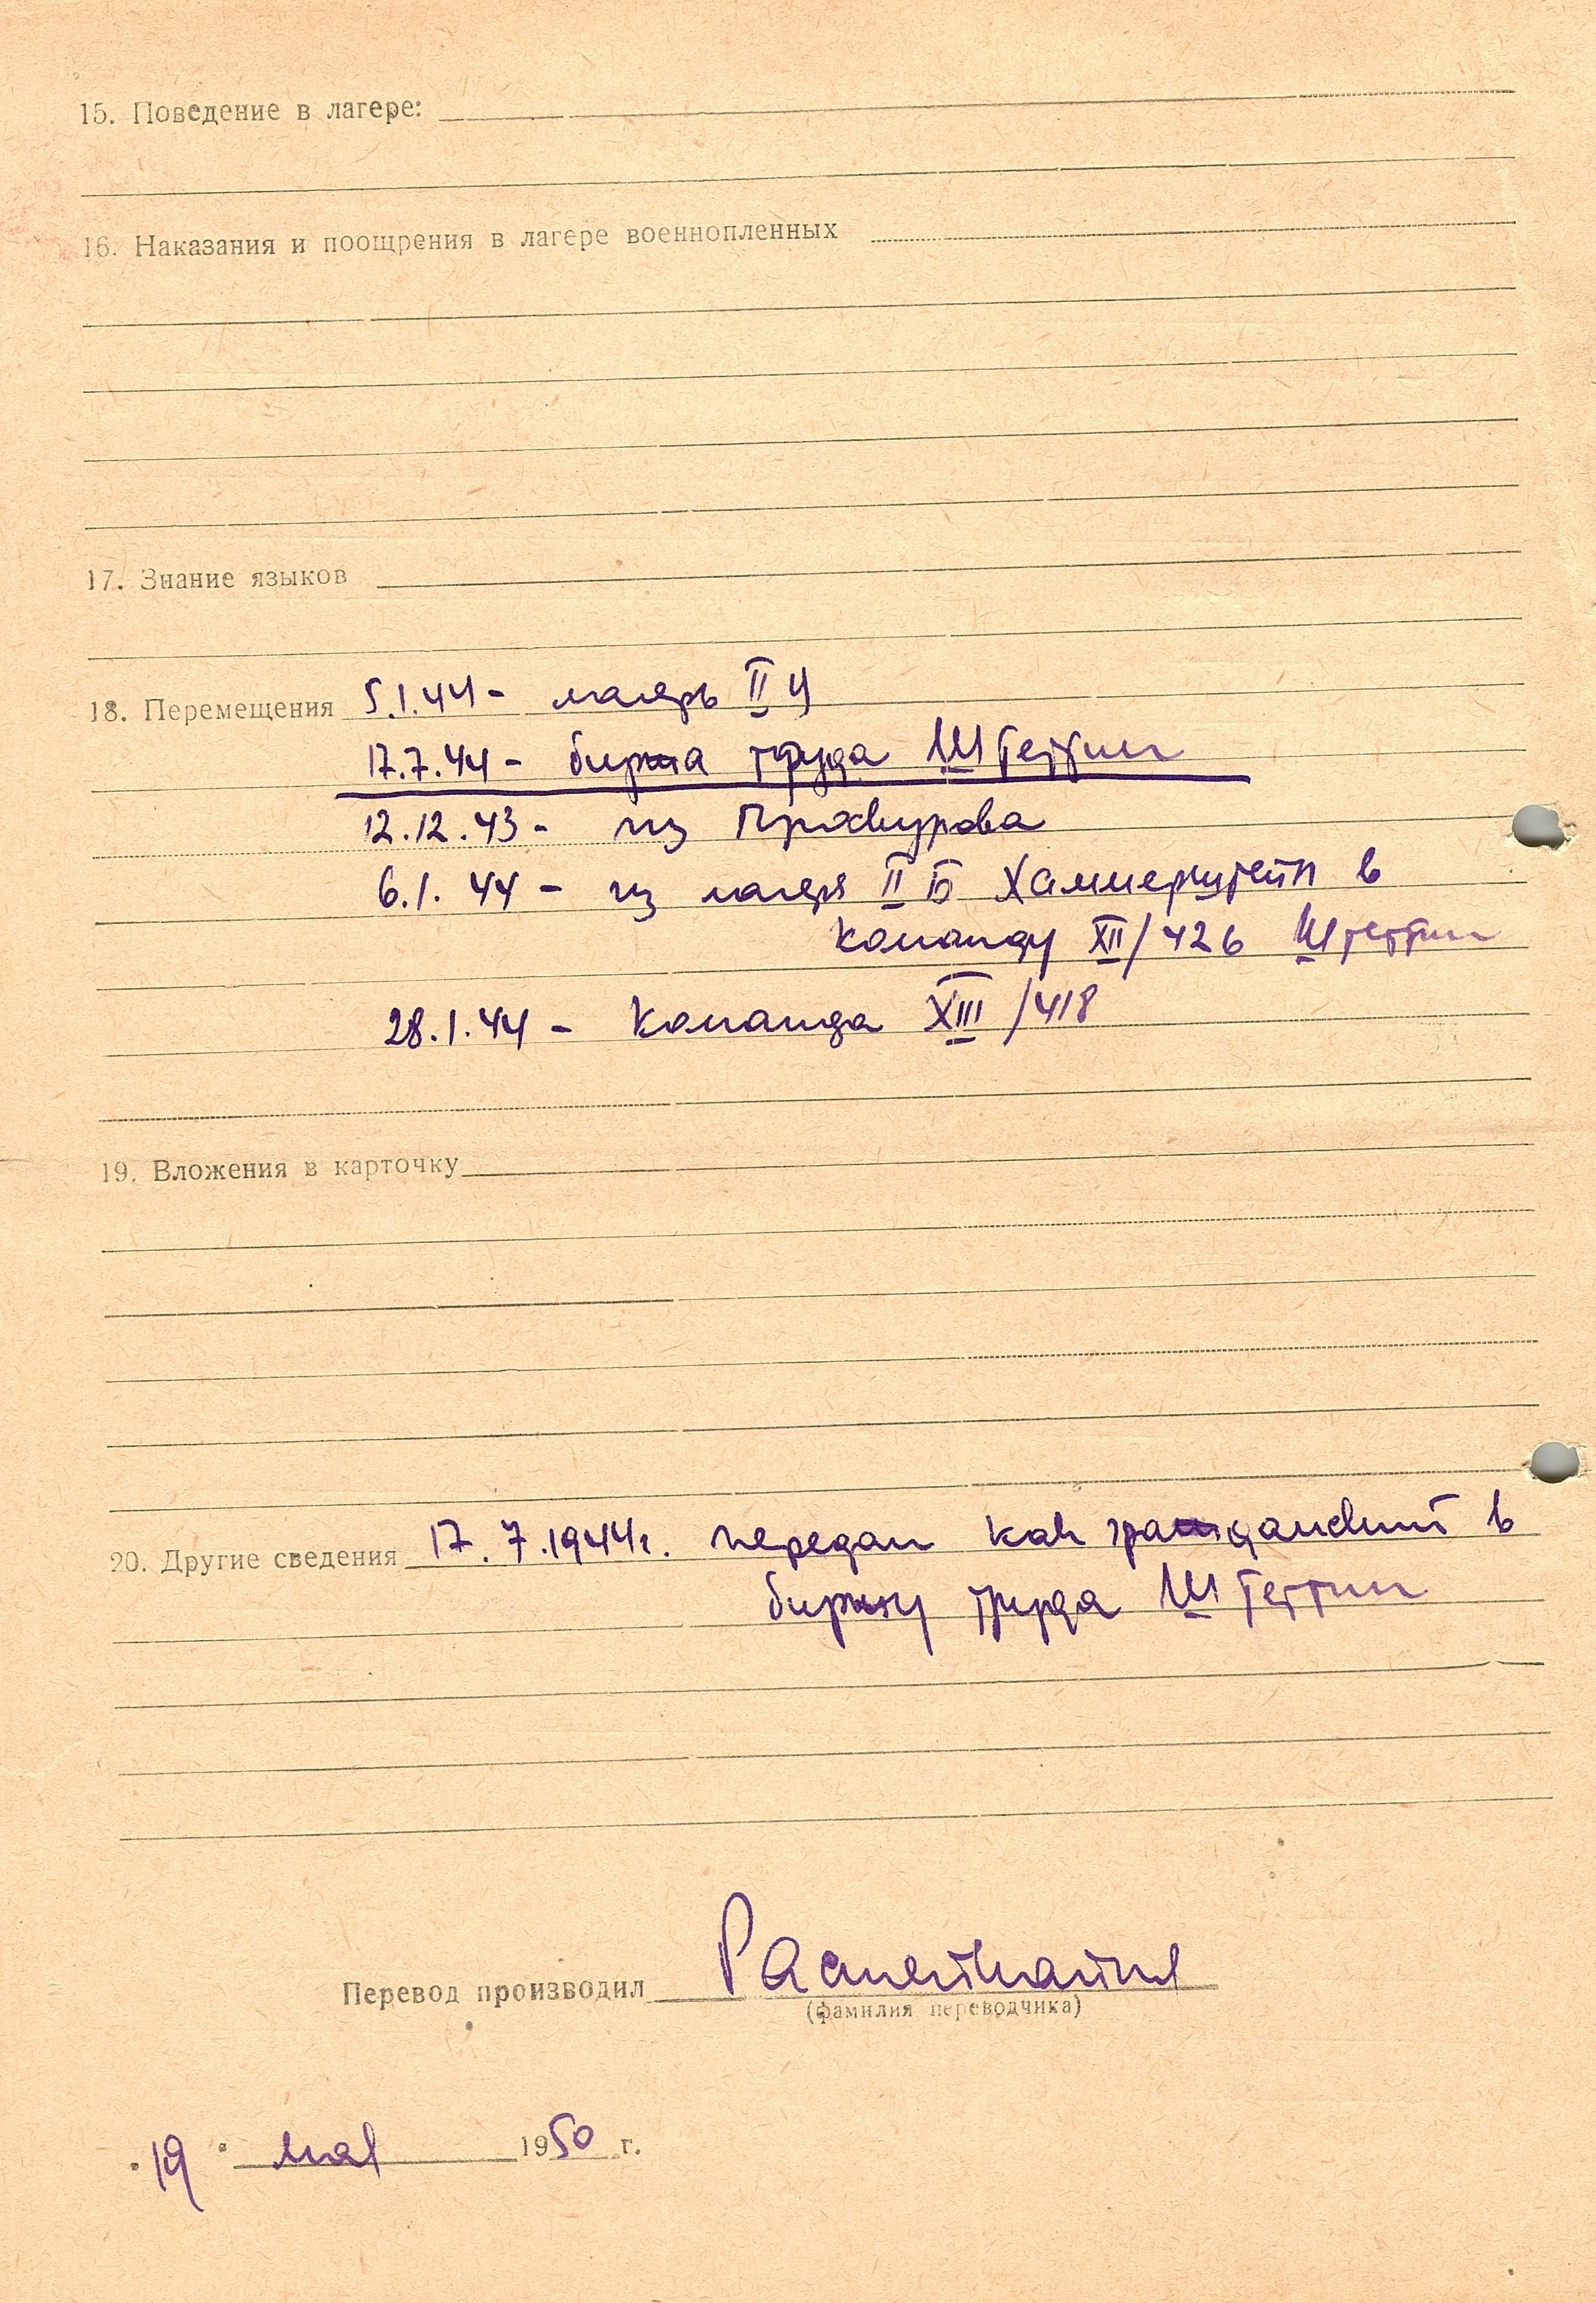 15. Поведение в лагере:
16. Наказания и поощрения в лагере военнопленных
17. Знание языков
18. Перемещения 5.1.44 - лагерь II Ц
17.7.44 - биржа труда Штеттин
12.12.43 - из Проскурова
6.1.44 - из лагеря II Б Хаммерштейн в
команду XII/426 Штеттин
28.1.44 - команда XIII/418
19. Вложения в карточку
20. Другие сведения 17.7.1944г. передан как гражданский в
биржу труда Штеттин
Перевод производил
(фамилия переводчика)
"19" мая 1950 г.